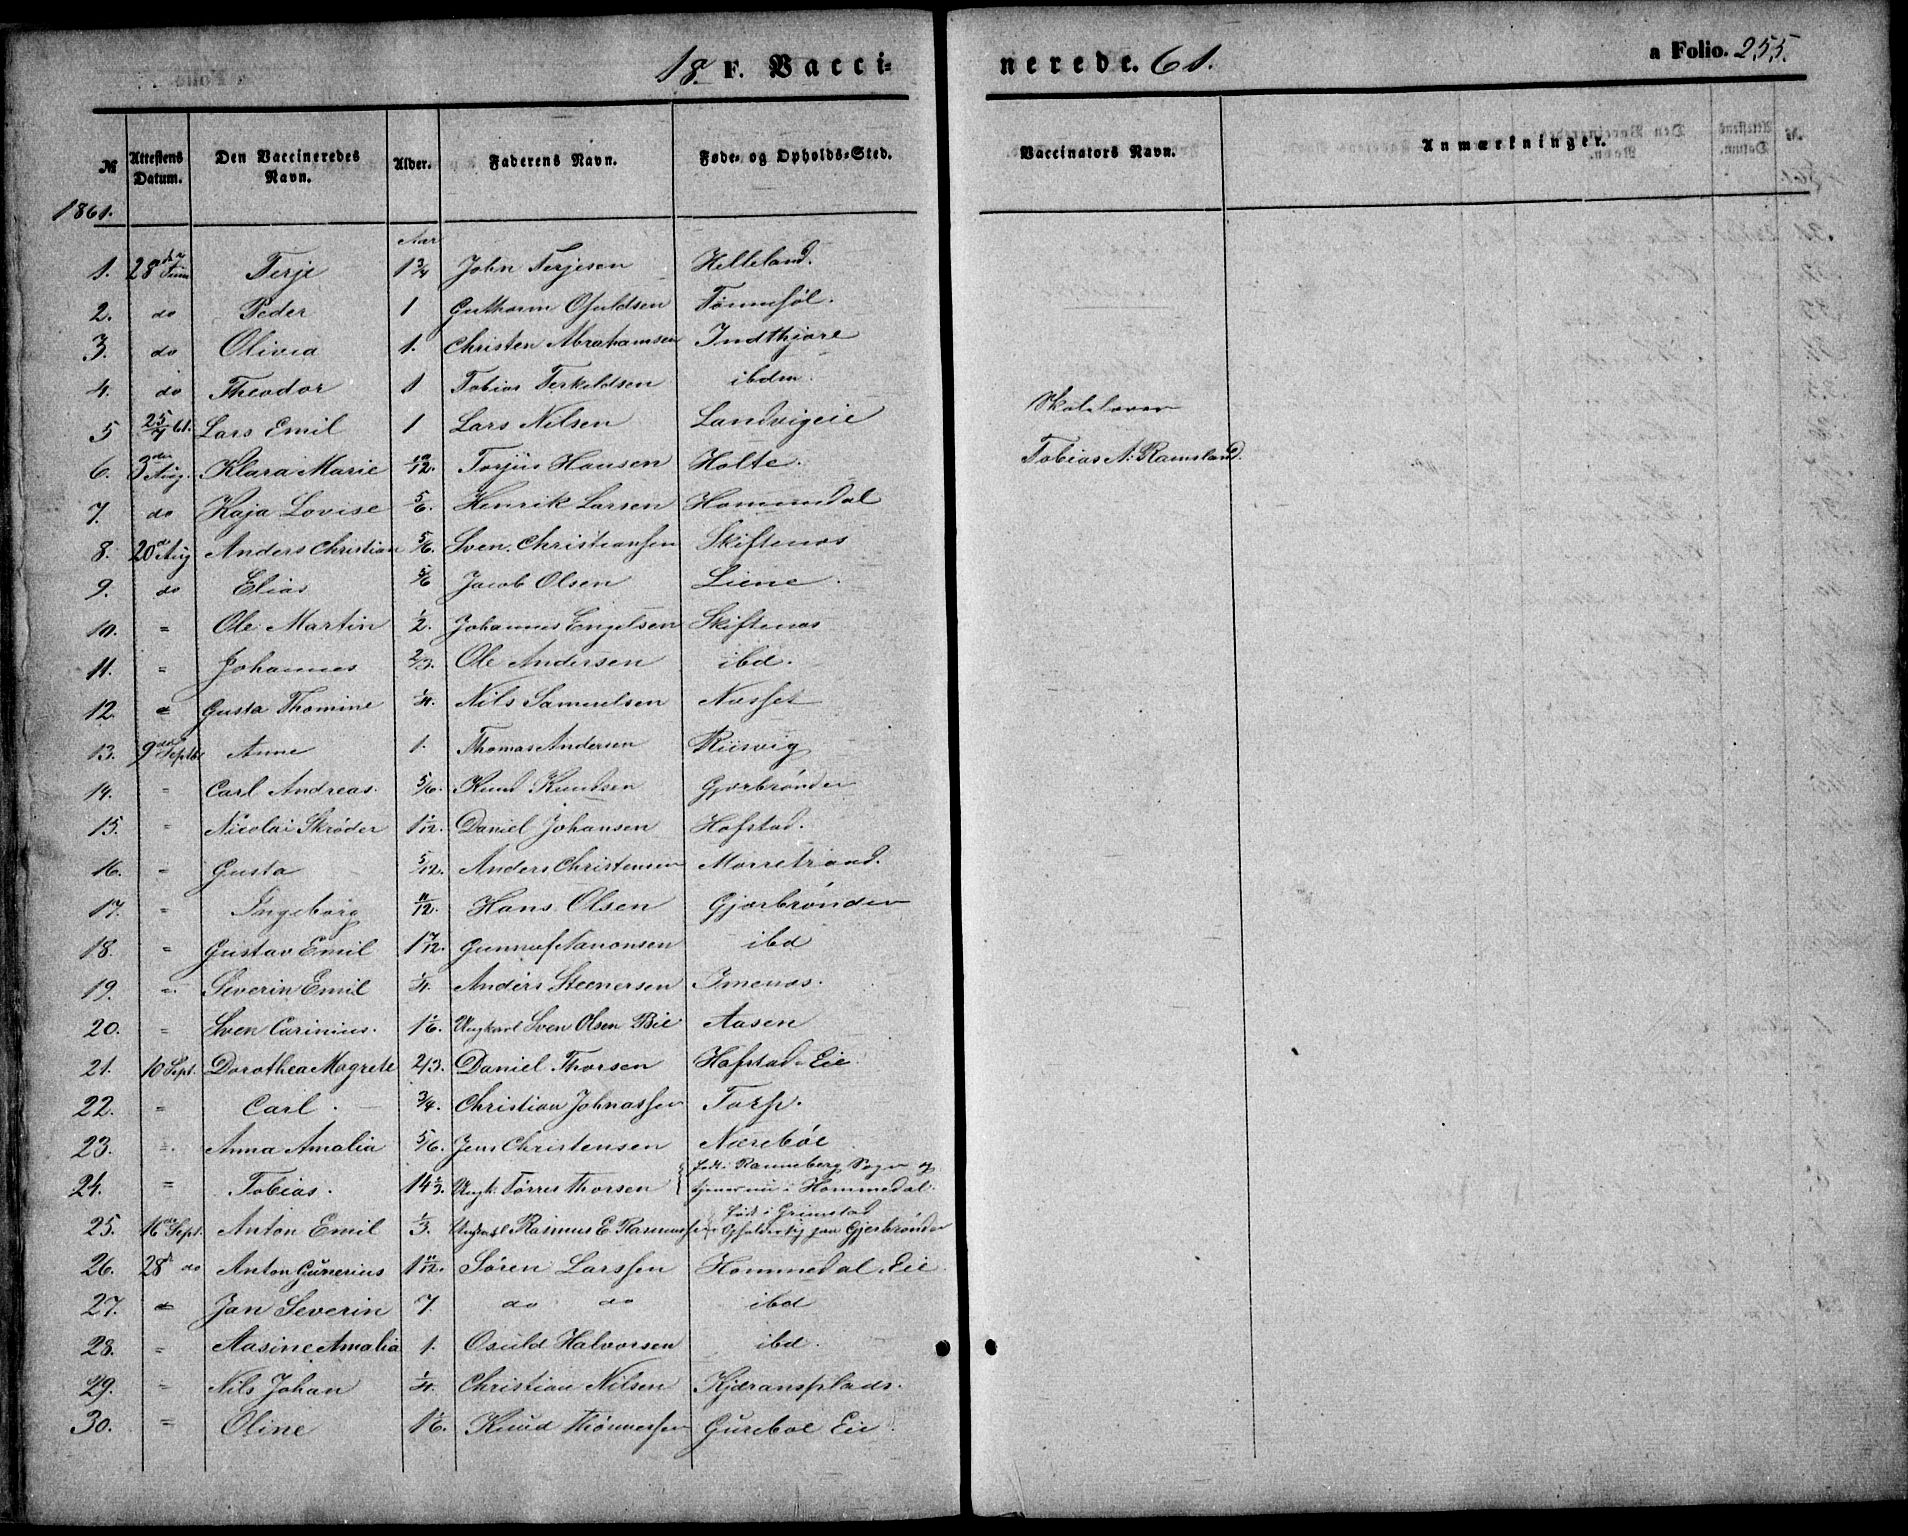 18 F. Vaccinerede. 61. a Folio. 255.
№ Attestens Datum. Den Vaccineredes Navn. Alder. Faderens Navn. Føde- og Opholds-Sted. Vaccinators Navn. Anmærkninger.
1861.
Aar
1. 28de Juni Terje 1 3/4 John Terjesen Helleland.
2. do Peder 1 Guthorm Osuldsen Tønnesøl.
3. do Olivia 1. Christen Abrahamsen Indthjore
4. do Theodor 1 Tobias Terkeldsen ibdm.
5 25/7 61. Lars Emil 1 Lars Nilsen Landvigeie Skolelærer
6. 3die Aug. Klara Marie 10/12. Torjus Hansen Holte. Tobias A. Ramsland.
7. do Kaja Lovise 5/6. Henrik Larsen Hommedal
8. 20de Aug Anders Christian 5/6. Sven Christiansen Skiftenæs
9. do Elias 5/6 Jacob Olsen Liene.
10. " Ole Martin 1/2. Johannes Engelsen Skiftenæs
11. " Johannes 2/3. Ole Andersen ibd.
12. " Gusta Thomine 1/4. Nils Samuelsen Næsset
13. 9de Septbr Anne 1. Thomas Andersen Riisvig
14. " Carl Andreas. 5/6. Knud Knudsen Gjærbrønden
15. " Nicolai Skrøder 1 1/12. Daniel Johansen Hafstad.
16. " Gusta 5/12. Anders Christensen Morretraad.
17. " Ingeborg 11/12. Hans Olsen Gjærbrønden
18. " Gustav Emil 1 7/12. Gunnuf Aanonsen ibd
19. " Severin Emil 1/4. Anders Steenersen Imenæs.
20. " Sven Carinius. 1 1/6. Ungkarl Sven Olsen Bie Aasen
21. 10 Sept. Dorothea Magrete 2/3. Daniel Thorsen Hafstad Eie
22. " Carl. 3/4. Christian Johnassen Torp.
23. " Anna Amalia 5/6. Jens Christensen Nærebøe
24. " Tobias. 14 1/3. Ungk. Tørres Thorsen født i Ranneberg Sogn og
tjener nu i Hommedal.
25. 16de Sept. Anton Emil 1/3. Ungkarl Rasmus E. Rasmussen født i Grimstad
Opholder sig paa Gjerbrønden
26. 28 do Anton Gunerius 1 11/12. Søren Larssen Hommedal Eie
27. " Jan Severin 7. do do ibd
28. " Aasine Amalia 1. Osuld Halvorsen ibd.
29. " Nils Johan 1/4. Christian Nilsen Kjæransplads.
30. " Oline 1 1/6. Knud Thønnessen Gurebøe Eie